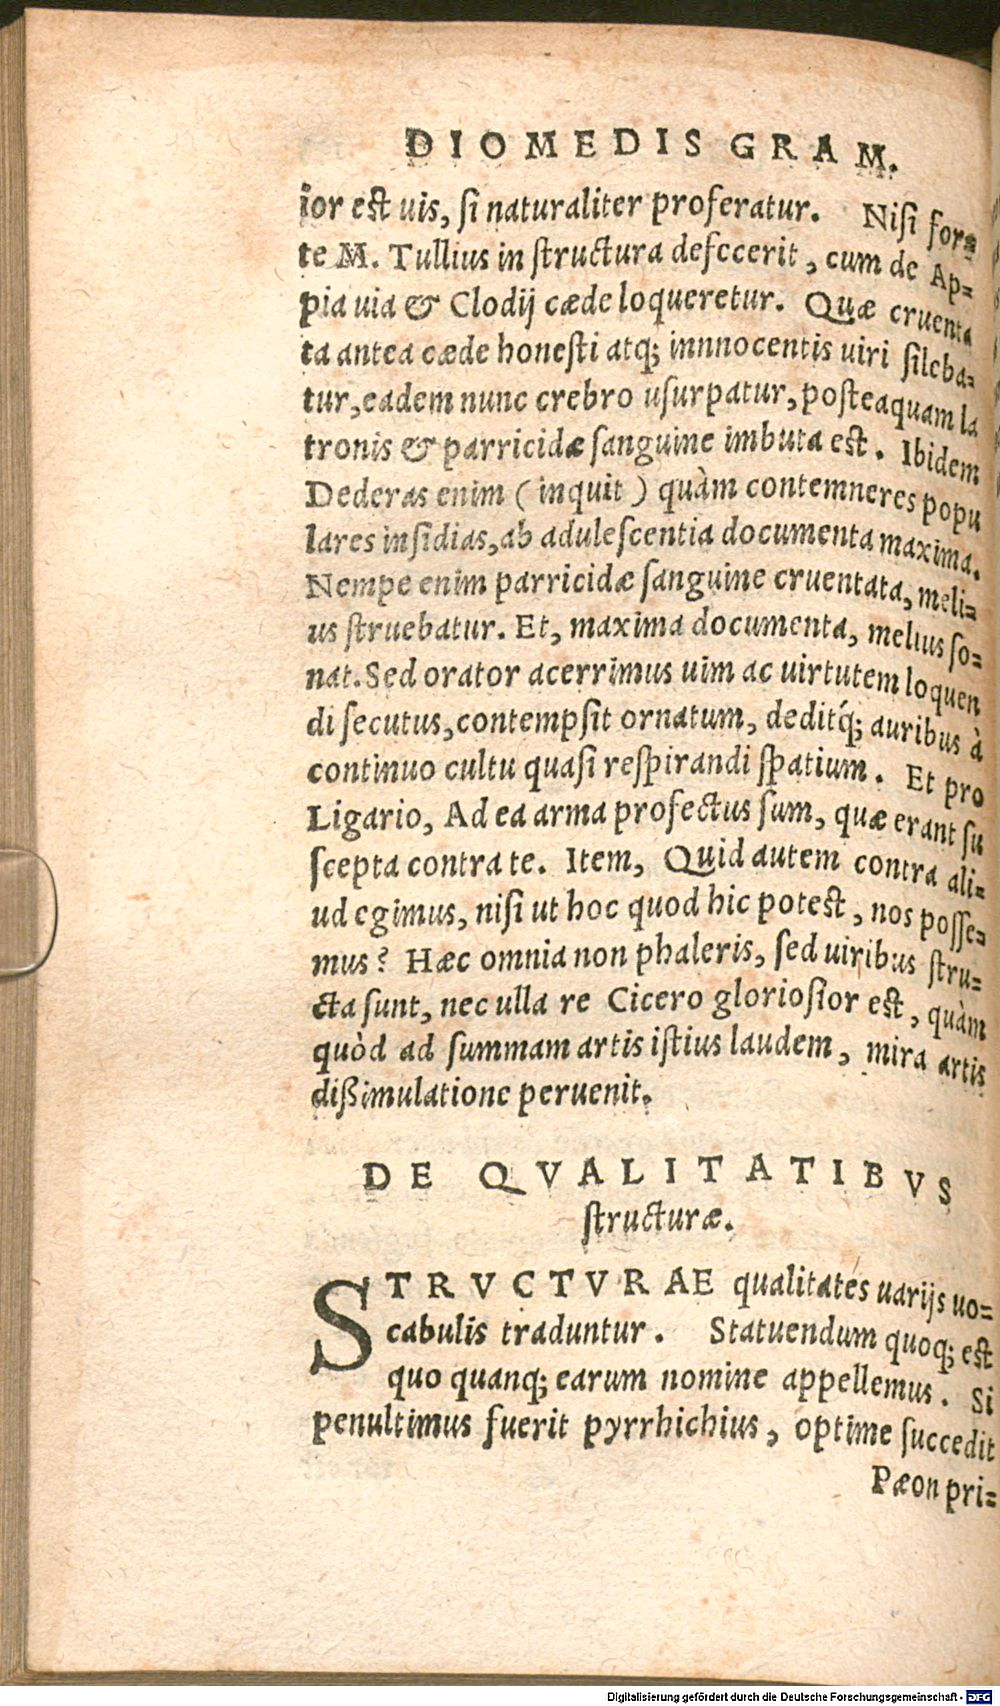 DIOMEDIS GRAM.
ior est uis, si naturaliter proferatur. Nisi for=
te M. Tullius in structura defecerit, cum de Ap=
pia uia & Clodij cæde loqueretur. Quæ cruenta
ta antea cæde honesti atq; innnocentis uiri sileba=
tur, eadem nunc crebro usurpatur, posteaquam la
tronis & parricidæ sanguine imbuta est. Ibidem
Dederas enim ( inquit ) quàm contemneres popu
lares insidias, ab adulescentia documenta maxima.
Nempe enim parricidæ sanguine cruentata, meli=
us struebatur. Et, maxima documenta, melius so=
nat. Sed orator acerrimus uim ac uirtutem loquen
di secutus, contempsit ornatum, deditq́; auribus à
continuo cultu quasi respirandi spatium. Et pro
Ligario, Ad ea arma profectus sum, quæ erant su
scepta contra te. Item, Quid autem contra ali=
ud egimus, nisi ut hoc quod hic potest, nos posse=
mus? Hæc omnia non phaleris, sed uiribus stru=
cta sunt, nec ulla re Cicero gloriosior est, quàm
quòd ad summam artis istius laudem, mira artis
dißimulatione peruenit.
DE QVALITATIBVS
structuræ.
STRVCTVRAE qualitates uarijs uo=
cabulis traduntur. Statuendum quoq; est
quo quanq; earum nomine appellemus. Si
penultimus fuerit pyrrhichius, optime succedit
Pæon pri=
Digitalisierung gefördert durch die Deutsche Forschungsgemeinschaft - DFG